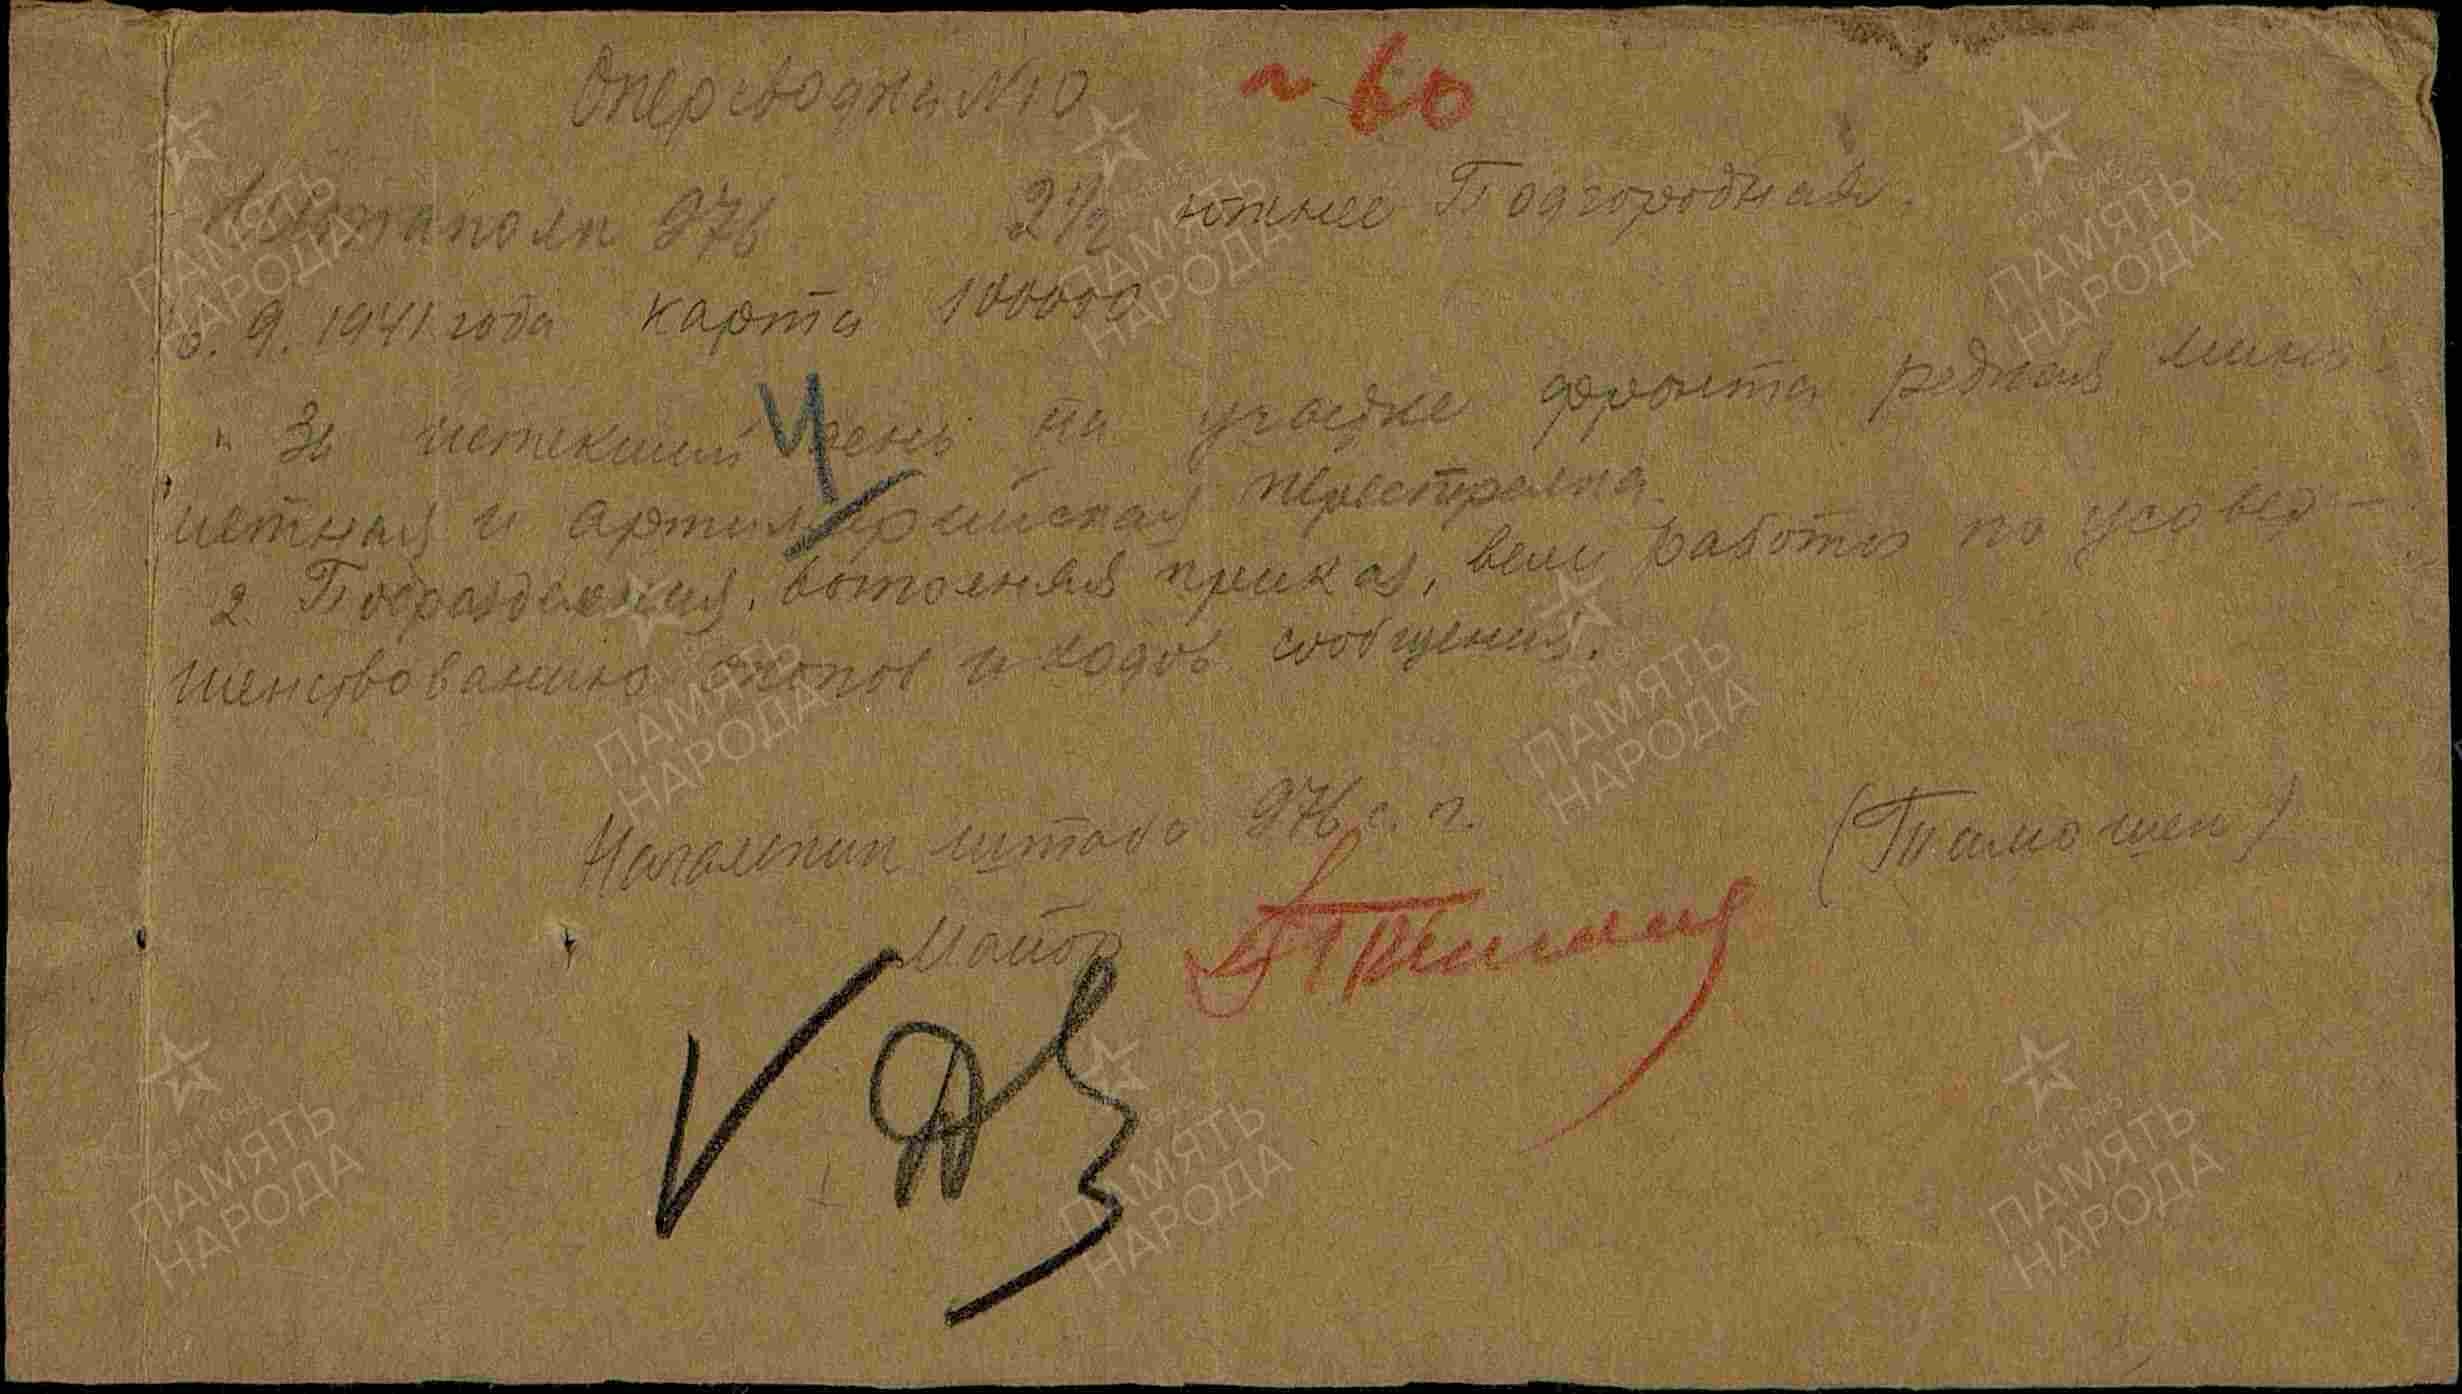 Оперсводка №10 № 60
Штаполк 976 2½ южнее Подгородная.
6. 9. 1941 года карта 100000
За истекший день на участке фронта редкая мино-
метная и артиллерийская перестрелка
2. Подразделения, выполняя приказ, вели работы по усовер-
шенствованию окопов и ходов сообщения.
Начальник штаба 976 с. п.
Майор (Тимошен)
ПАМЯТЬ
НАРОДА